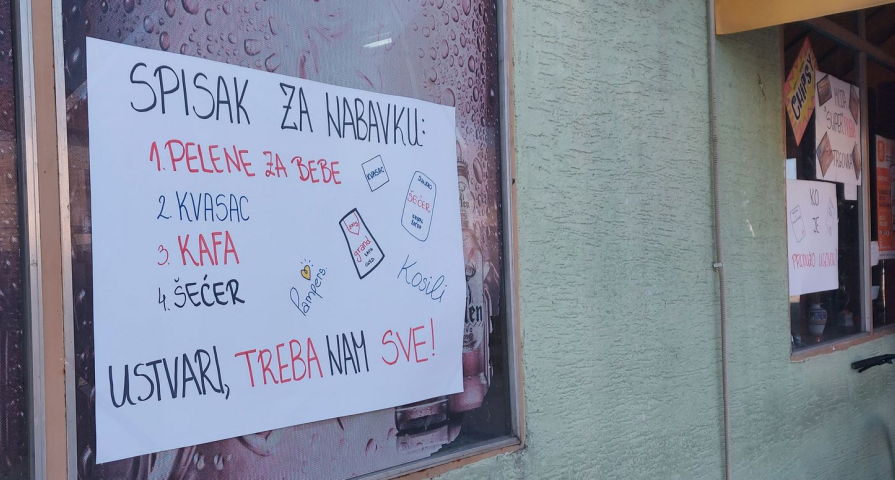 SPISAK ZA NABAVKU:
1. PELENE ZA BEBE
2. KVASAC
3. KAFA
4. ŠEĆER
KVASAC
ŠEĆER
grand
Pampers
Kosili
USTVARI, TREBA NAM SVE!
CHIPSY
SUPER
KO
JE